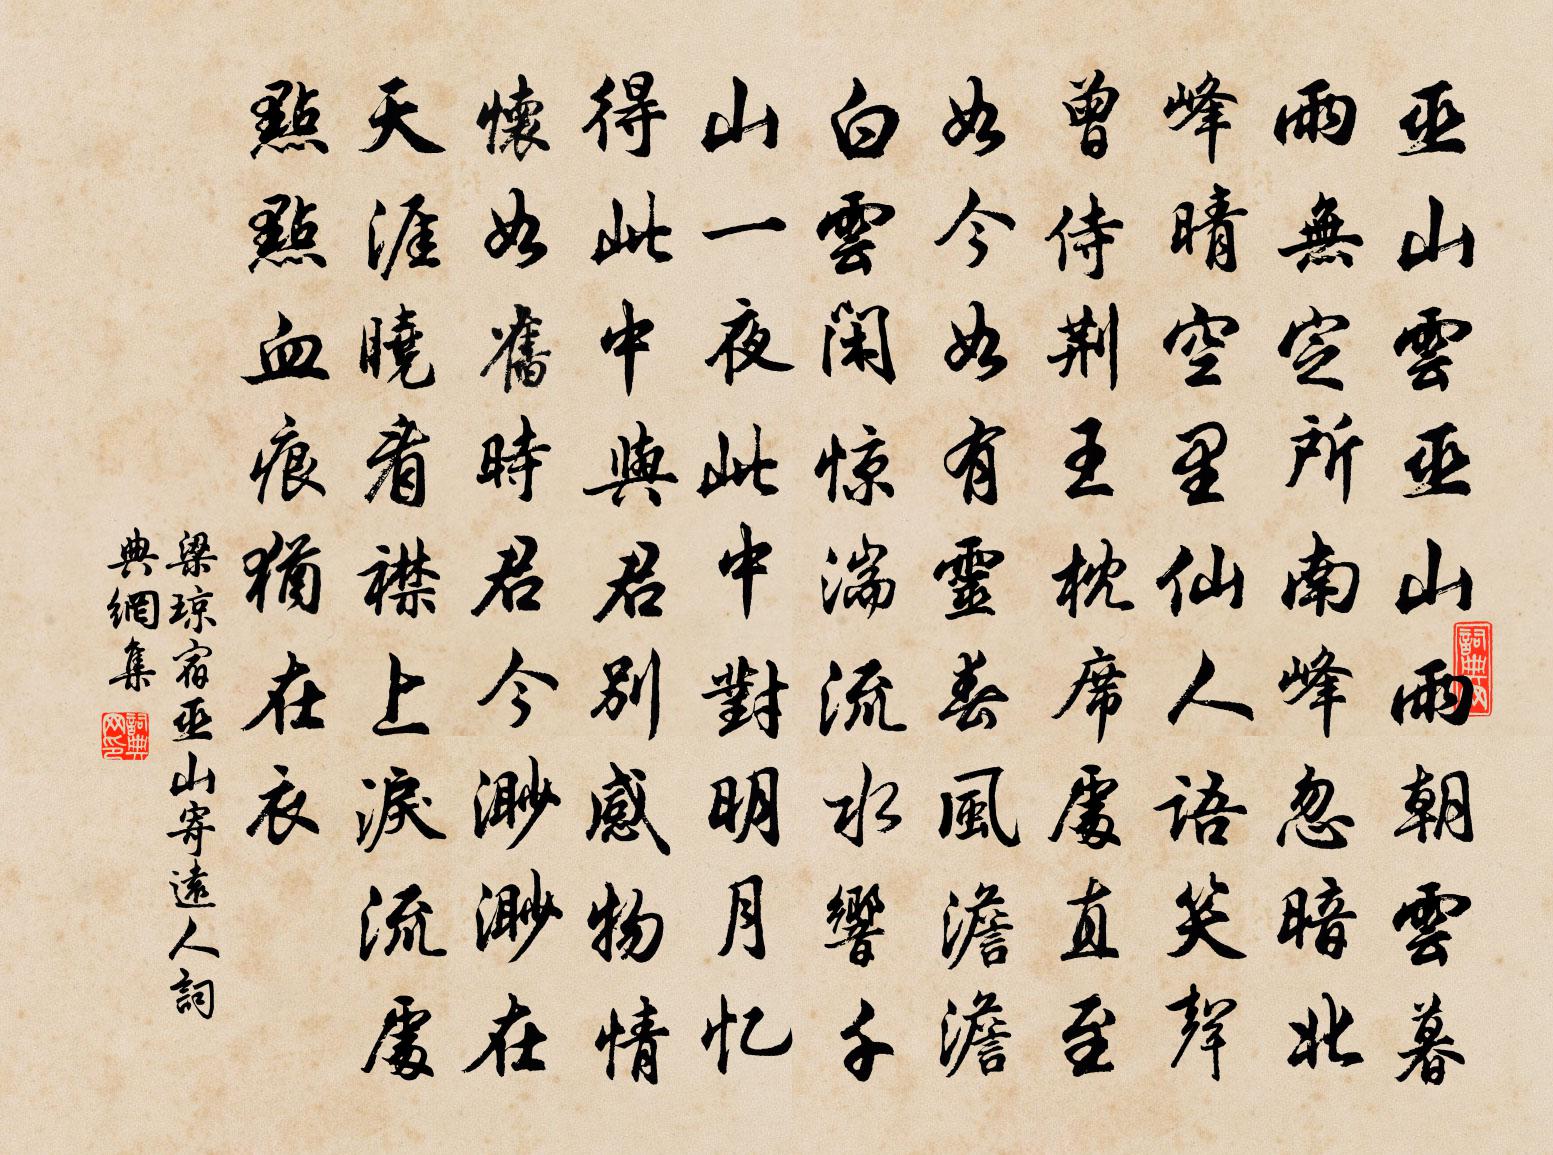 巫山雲巫山雨朝雲暮
雨無定所南峰忽暗北
峰晴空里仙人語笑聲
曾侍荆王枕席處直至
如今如有靈春風澹澹
白雲閑惊湍流水響千
山一夜此中對明月忆
得此中與君別感物情
懷如舊時君今渺渺在
天涯曉看襟上淚流處
點點血痕猶在衣
梁琼宿巫山寄遠人詞
典網集
詞典网
詞典网印